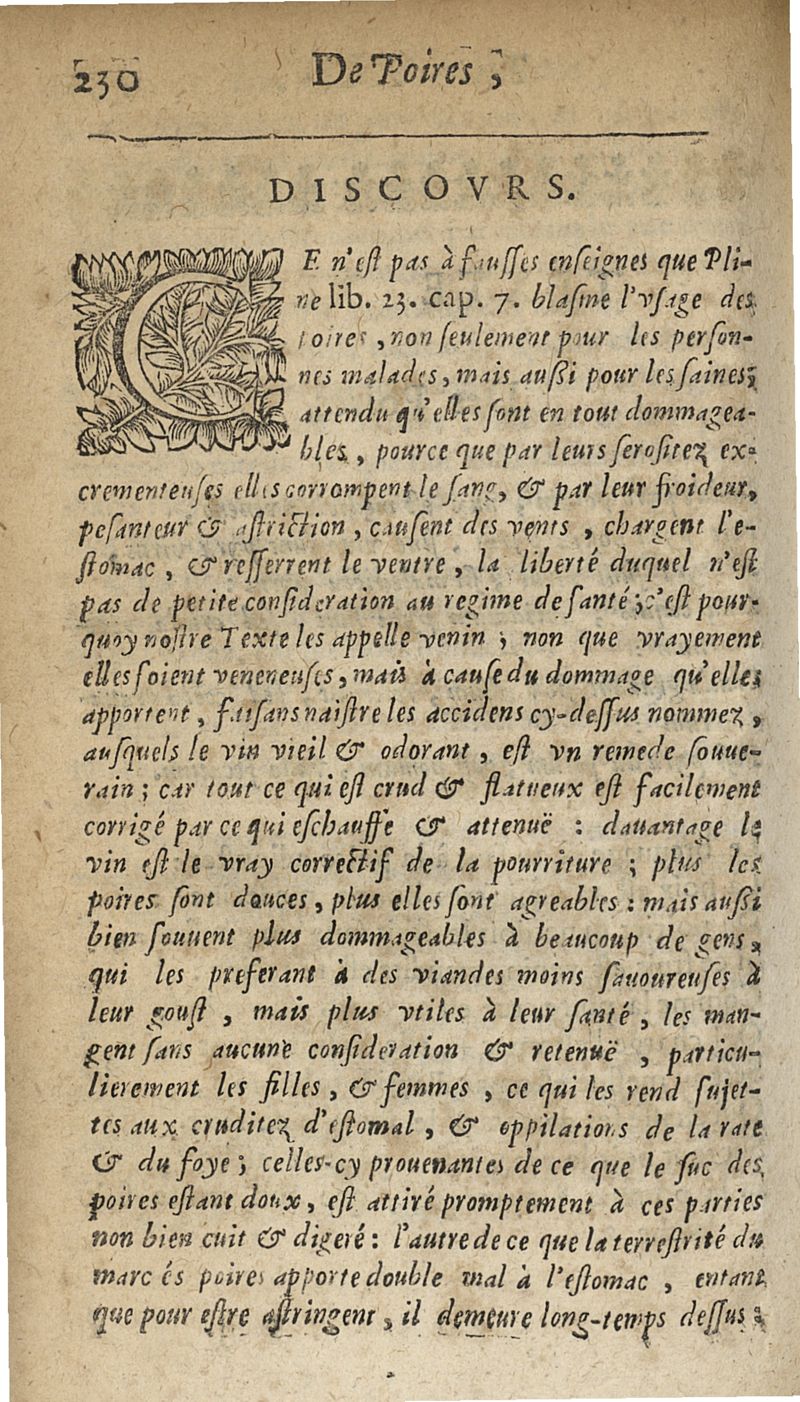 230 De Poires,
DISCOVRS.
CE n'eſt pas à fauſſes enſeignes que Pli-
ne lib. 23. cap. 7. blaſme l'vſage des
Poires, non ſeulement pour les perſon-
nes malades, mais auſſi pour les ſaines;
attendu qu'elles ſont en tout dommagea-
bles, pource que par leurs ſeroſitez ex-
crementeuſes elles corrompent le ſang, & par leur froideur,
peſanteur & aſtriction, cauſent des vents, chargent l'e-
ſtomac, & reſſerrent le ventre, la liberté duquel n'eſt
pas de petite conſideration au regime de ſanté; c'eſt pour-
quoy noſtre Texte les appelle venin; non que vrayement
elles ſoient veneneuſes, mais à cauſe du dommage qu'elles
apportent, faiſans naiſtre les accidens cy-deſſus nommez,
auſquels le vin vieil & odorant, eſt vn remede ſouue-
rain; car tout ce qui eſt crud & flatueux eſt facilement
corrigé par ce qui eſchauffe & attenuë: dauantage le
vin eſt le vray correctif de la pourriture; plus les
poires ſont douces, plus elles ſont agreables: mais auſſi
bien ſouuent plus dommageables à beaucoup de gens,
qui les preferant à des viandes moins ſauoureuſes à
leur gouſt, mais plus vtiles à leur ſanté, les man-
gent ſans aucune conſideration & retenuë, particu-
lierement les filles, & femmes, ce qui les rend ſujet-
tes aux cruditez d'eſtomal, & oppilations de la rate
& du foye; celles-cy prouenantes de ce que le ſuc des
poires eſtant doux, eſt attiré promptement à ces parties
non bien cuit & digeré: l'autre de ce que la terreſtrité du
marc és poires apporte double mal à l'eſtomac, entant
que pour eſtre aſtringent, il demeure long-temps deſſus: